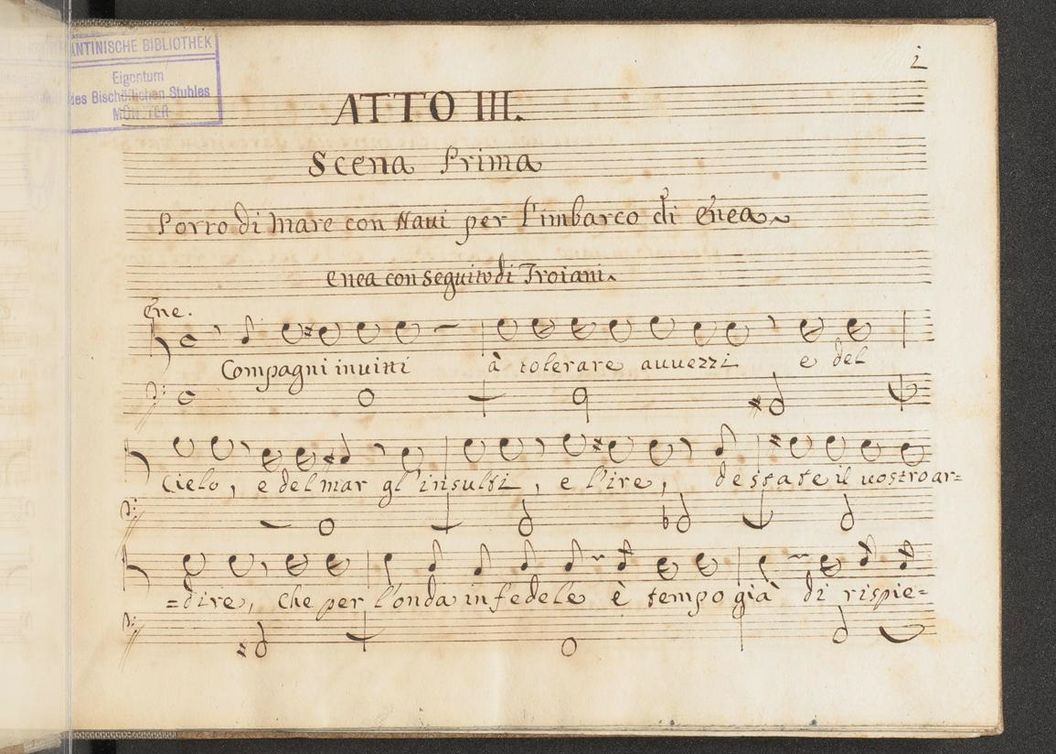 ANTINISCHE BIBLIOTHEK
Eigentum
des Bischöflichen Stuhles
MÜNSTER
1
ATTO III.
Scena Prima
Porto di Mare con Naui per l'imbarco di Enea
Enea con seguito di Troiani.
Ene.
Compagni inuitti à tolerare auuezzi e del
Cielo, e del mar gl'insulti, e l'ire, destate il uostro ar=
=dire, Che per l'onda infedele è tempo già di rispie=